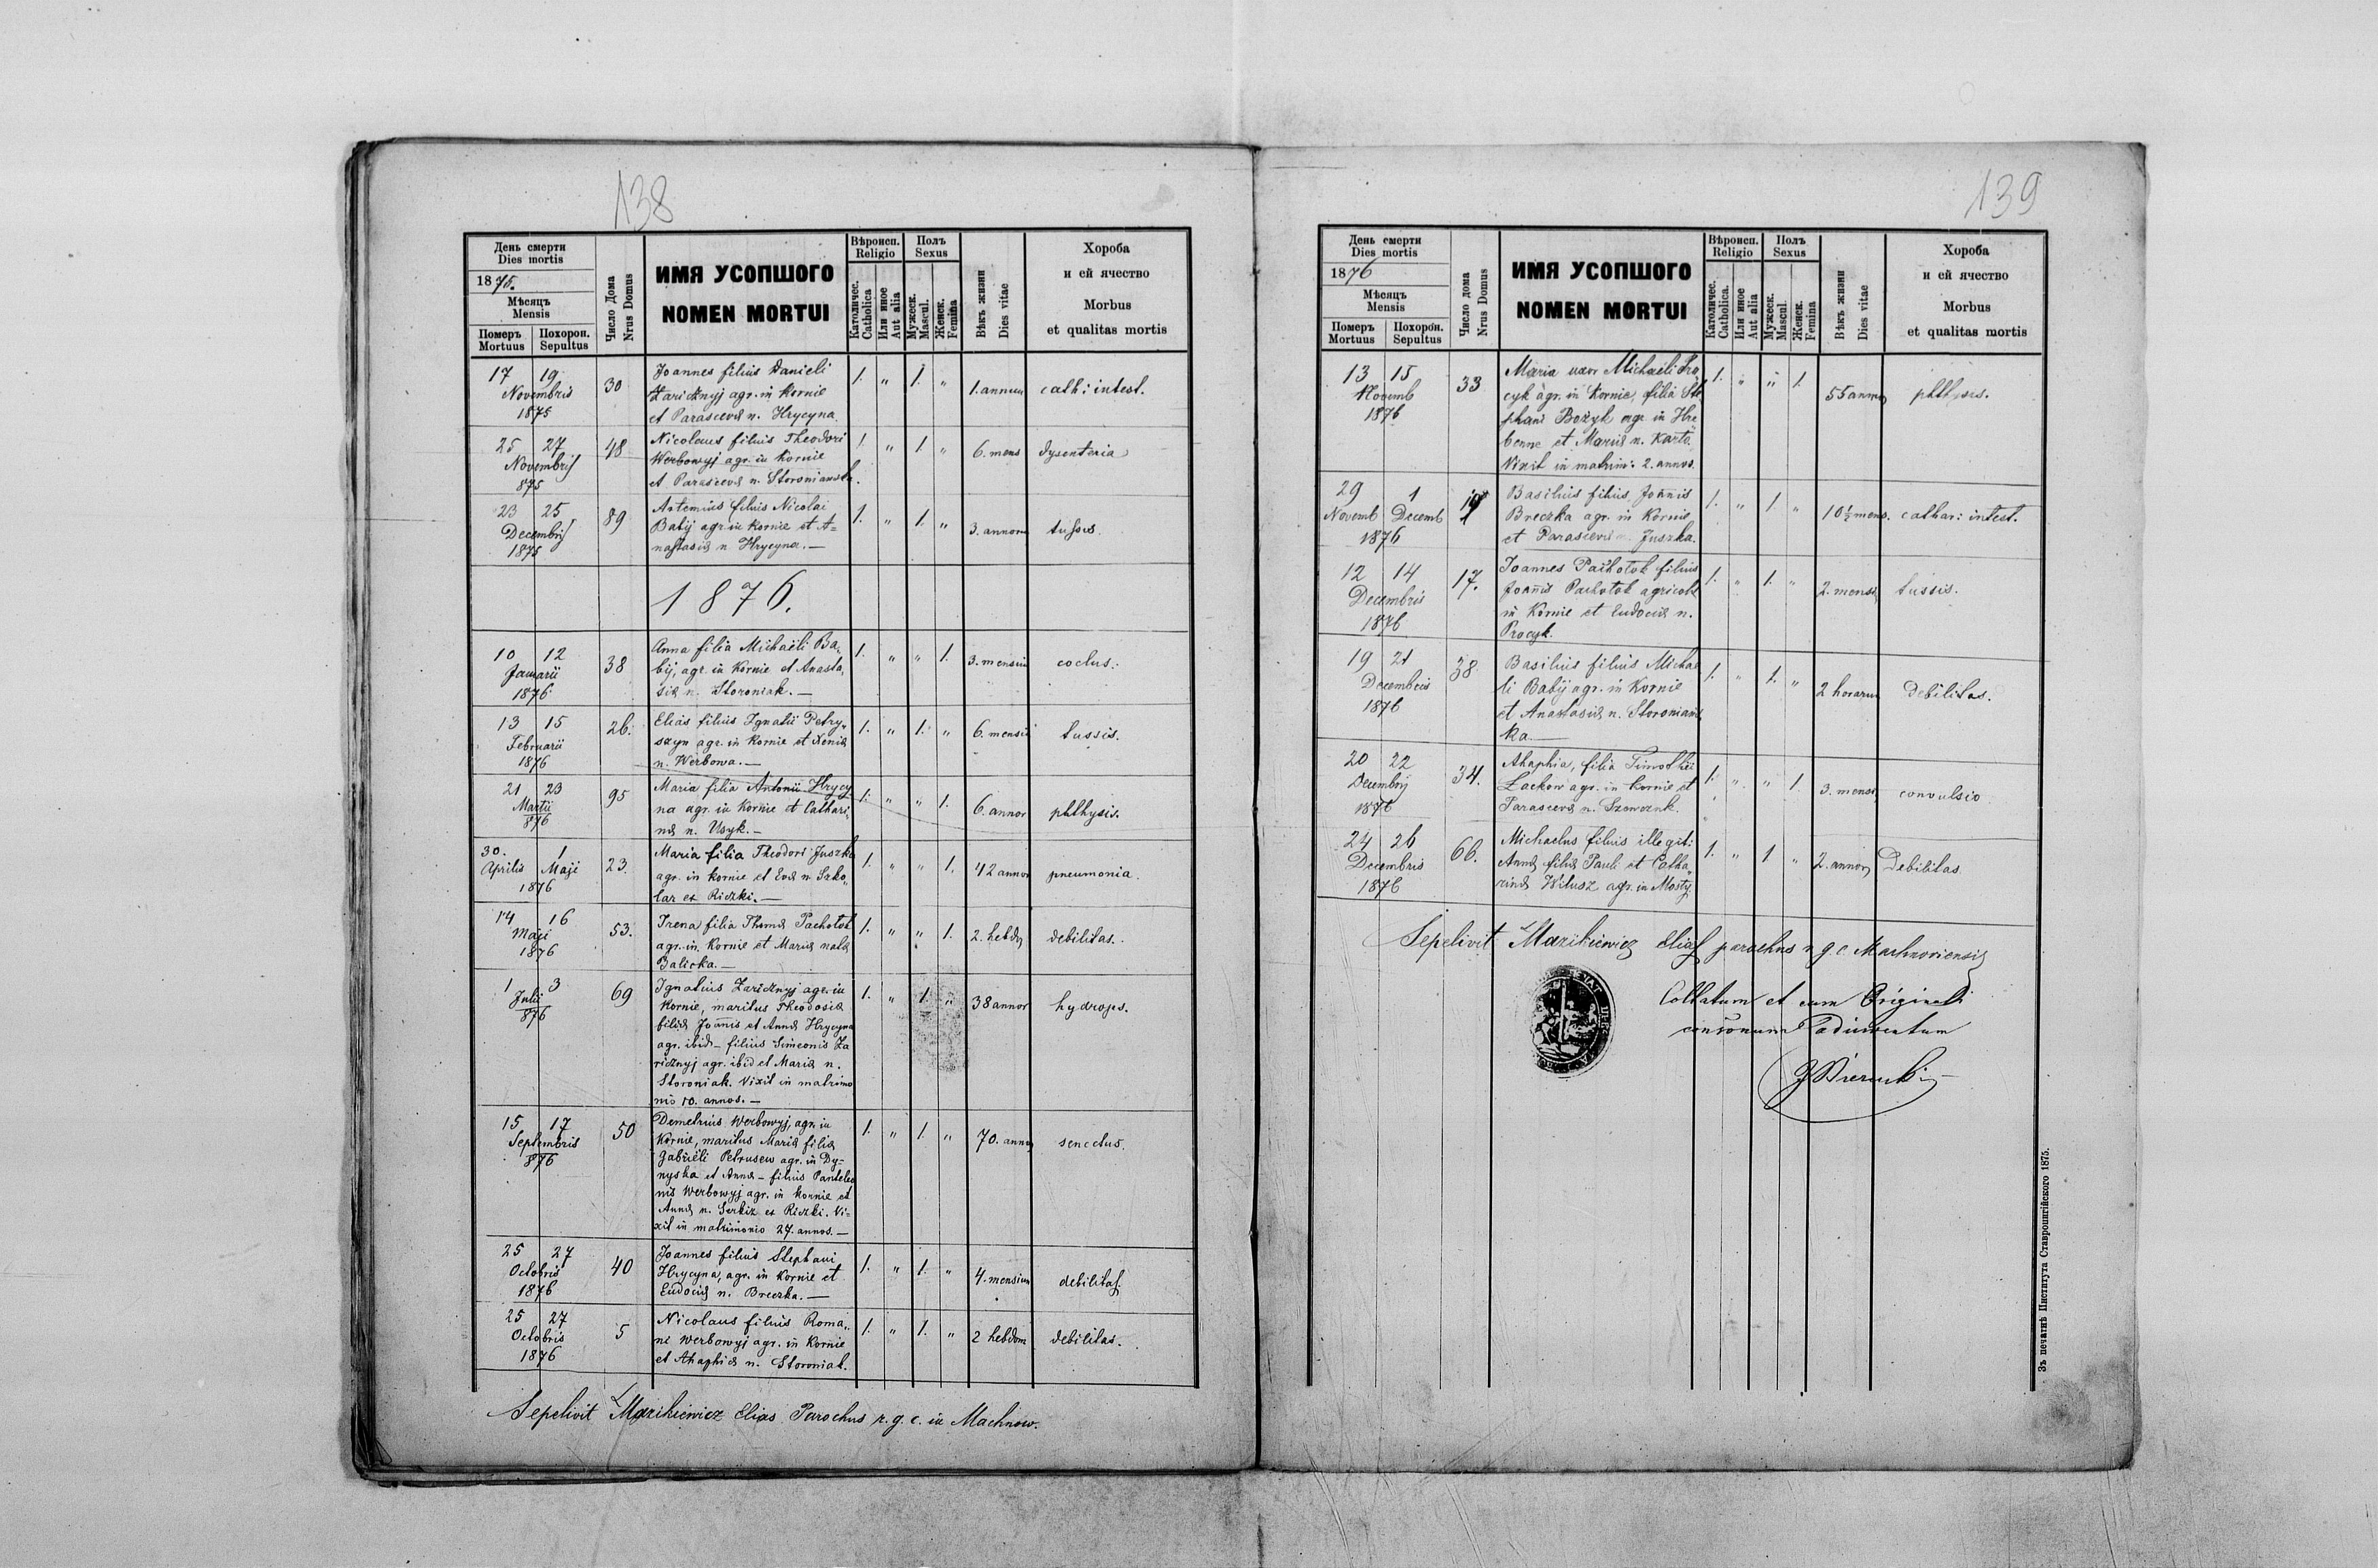 138
День смерти
Dies mortis
1875.
Мѣсяцъ
Mensis
Померъ Похорон.
Mortuus Sepultus
Число Дома
Nrus Domus
ИМЯ УСОПШОГО
NOMEN MORTUI
Вѣроисп.
Religio
Католичес.
Catholica
Или иное
Aut alia
Полъ
Sexus
Мужеск.
Mascul.
Женск.
Femina
Вѣкъ жизни
Dies vitae
Хороба
и ей ячество
Morbus
et qualitas mortis
17 19
Novembris
1875
30
Joannes filius Danieli
Zaricznyj agr. in Kornie
et Parascevæ n. Hrycyna
1. " 1. "
1. annum
cath: intest.
25 27
Novembris
875
48
Nicolaus filius Theodori
Werbowyj agr. in Kornie
et Parascevæ n. Storonianska.
1. " 1. "
6. mens
dysenteria
23 25
Decembris
1875
89
Artemius filius Nicolai
Babij agr in Kornie et A=
nastasiæ n Hrycyna. —
1. " 1. "
3. annorum
tussis.
1876.
10 12
Januarii
1876
38
Anna filia Michaëli Ba„
bij, agr. in Kornie et Anasta„
siæ n. Storoniak. —
1. " " 1.
3. mensium
coclus.
13 15
Februarii
1876
26.
Elias filius Ignatii Petry„
szyn agr. in Kornie et Xeniæ
n. Werbowa. —
1. " 1. "
6. mensis
tussis.
21 23
Martii
876
95
Maria filia Antonii Hrycy
na agr. in Kornie et Cathari„
næ n. Usyk. —
1. " " 1.
6. annor
phthysis.
30. 1
Aprilis Maji
1876
23.
Maria filia Theodori Juszka
agr. in Kornie et Evæ n. Szko„
lar ex Riczki. —
1. " " 1.
42 annor
pneumonia.
14 16
Maji
1876
53.
Irena filia Thomæ Pachotok
agr. in Kornie et Mariæ natæ
Balicka. —
1. " " 1.
2. hebd
debilitas.
1 3
Julii
876
69
Ignatius Zaricznyj agr. in
Kornie, maritus Theodosiæ
filiæ Joannis et Annæ Hrycyna
agr. ibid – filius Simeonis Za
ricznyj agr. ibid et Mariæ n.
Storoniak. Vixit in matrimo
nio 10. annos. —
1. " 1. "
38 annor
hydrops.
15 17
Septembris
876
50
Demetrius Werbowyj, agr. in
Kornie, maritus Mariæ filiæ
Gabriëli Petrusew agr. in Dy=
nyska et Annæ – filius Panteleo
nis Werbowyj agr. in Kornie et
Annæ n. Serkiz ex Riczki. Vi=
xit in matrimonio 27. annos. —
1. " 1. "
70. annor
senectus.
25 27
Octobris
1876
40
Joannes filius Stephani
Hrycyna, agr. in Kornie et
Eudociæ n. Breczka. —
1. " 1. "
4. mensium
debilitas.
25 27
Octobris
1876
5
Nicolaus filius Roma„
ni Werbowyj agr. in Kornie
et Ahaphiæ n. Storoniak.
1. " 1. "
2 hebdom
debilitas.
Sepelivit Mazikiewicz Elias Parochus r. g. c. in Machnow.
139
День смерти
Dies mortis
1876
Мѣсяцъ
Mensis
Померъ Похорон.
Mortuus Sepultus
Число дома
Nrus Domus
ИМЯ УСОПШОГО
NOMEN MORTUI
Вѣроисп.
Religio
Католичес.
Catholica.
Или иное
Aut alia
Полъ
Sexus
Мужеск.
Mascul.
Женск.
Femina
Вѣкъ жизни
Dies vitae
Хороба
и ей ячество
Morbus
et qualitas mortis
13 15
Novemb
1876
33
Maria uxor Michaëli Pro
cyk agr. in Kornie, filia Ste
phani Bożyk agr in Hre
benne et Mariæ n. Karta
Vixit in matrim: 2. annos.
1. " " 1.
55 annor
phthysis.
29 1
Novemb Decemb
1876
Basilius filius Joannis
Breczka agr. in Kornie
et Parascevæ n. Juszka.
1. " 1 "
10½ mens.
cathar: intest.
12 14
Decembris
1876
17.
Joannes Pachotok filius
Joannis Pachotok agricolæ
in Kornie et Eudociæ n.
Procyk.
1. " 1. "
2. mens
tussis.
19 21
Decembris
1876
38
Basilius filius Michaë
li Babij agr. in Kornie
et Anastasiæ n. Storonians
ka —
1. " 1. "
2 horarum
debilitas.
20 22
Decembris
1876
34.
Ahaphia, filia Timothei
Lackow agr. in Kornie et
Parascevæ n. Szewczuk.
1. " " 1
3. mens
convulsio
24 26
Decembris
1876
66.
Michaelus filius illegit:
Annæ filiæ Pauli et Catha„
rinæ Witusz agr. in Mosty.
1. " 1 "
2. annor
Debilitas
Sepelivit Mazikiewicz Elias parochus r. g. c. Machnoviensis
Collatum et cum Originali
consonum adinventum
Зъ печатнѣ Института Ставропигійского 1875.